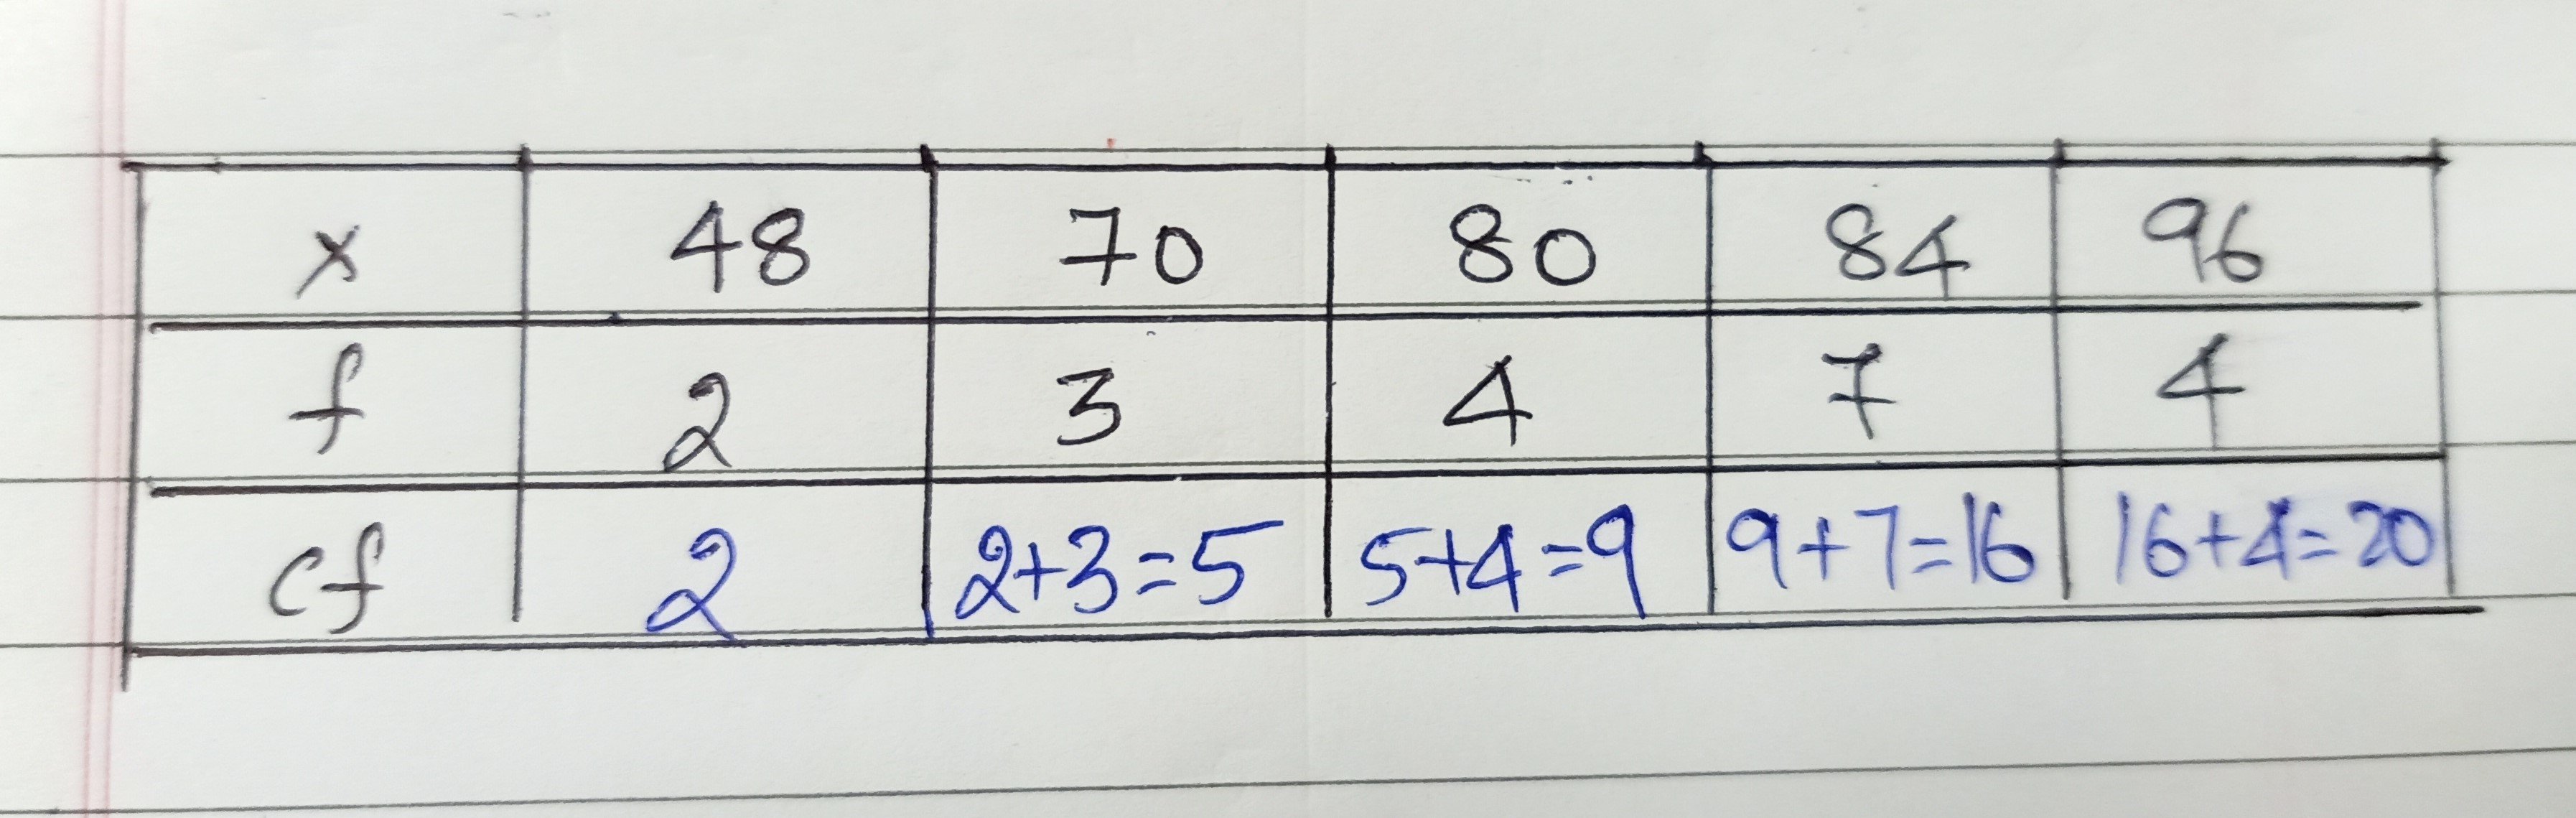 x 48 70 80 84 96
f 2 3 4 7 4
cf 2 2+3=5 5+4=9 9+7=16 16+4=20